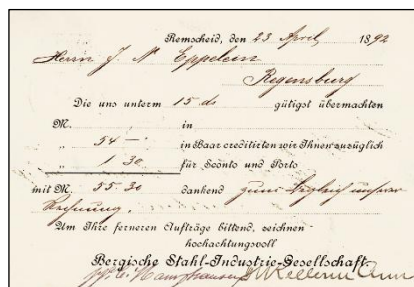 Remscheid, den 23 April 1892
Herrn J. N. Eppelein
Regensburg
Die uns unterm 15 ds gütigst übermachten
M. in
„ 54 — in Baar creditirten wir Ihnen zuzüglich
„ 1 30 für Sconto und Porto
mit M. 55.30 dankend zum Ausgleich unserer
Rechnung.
Um Ihre ferneren Aufträge bittend, zeichnen
hochachtungsvoll
Bergische Stahl-Industrie-Gesellschaft.